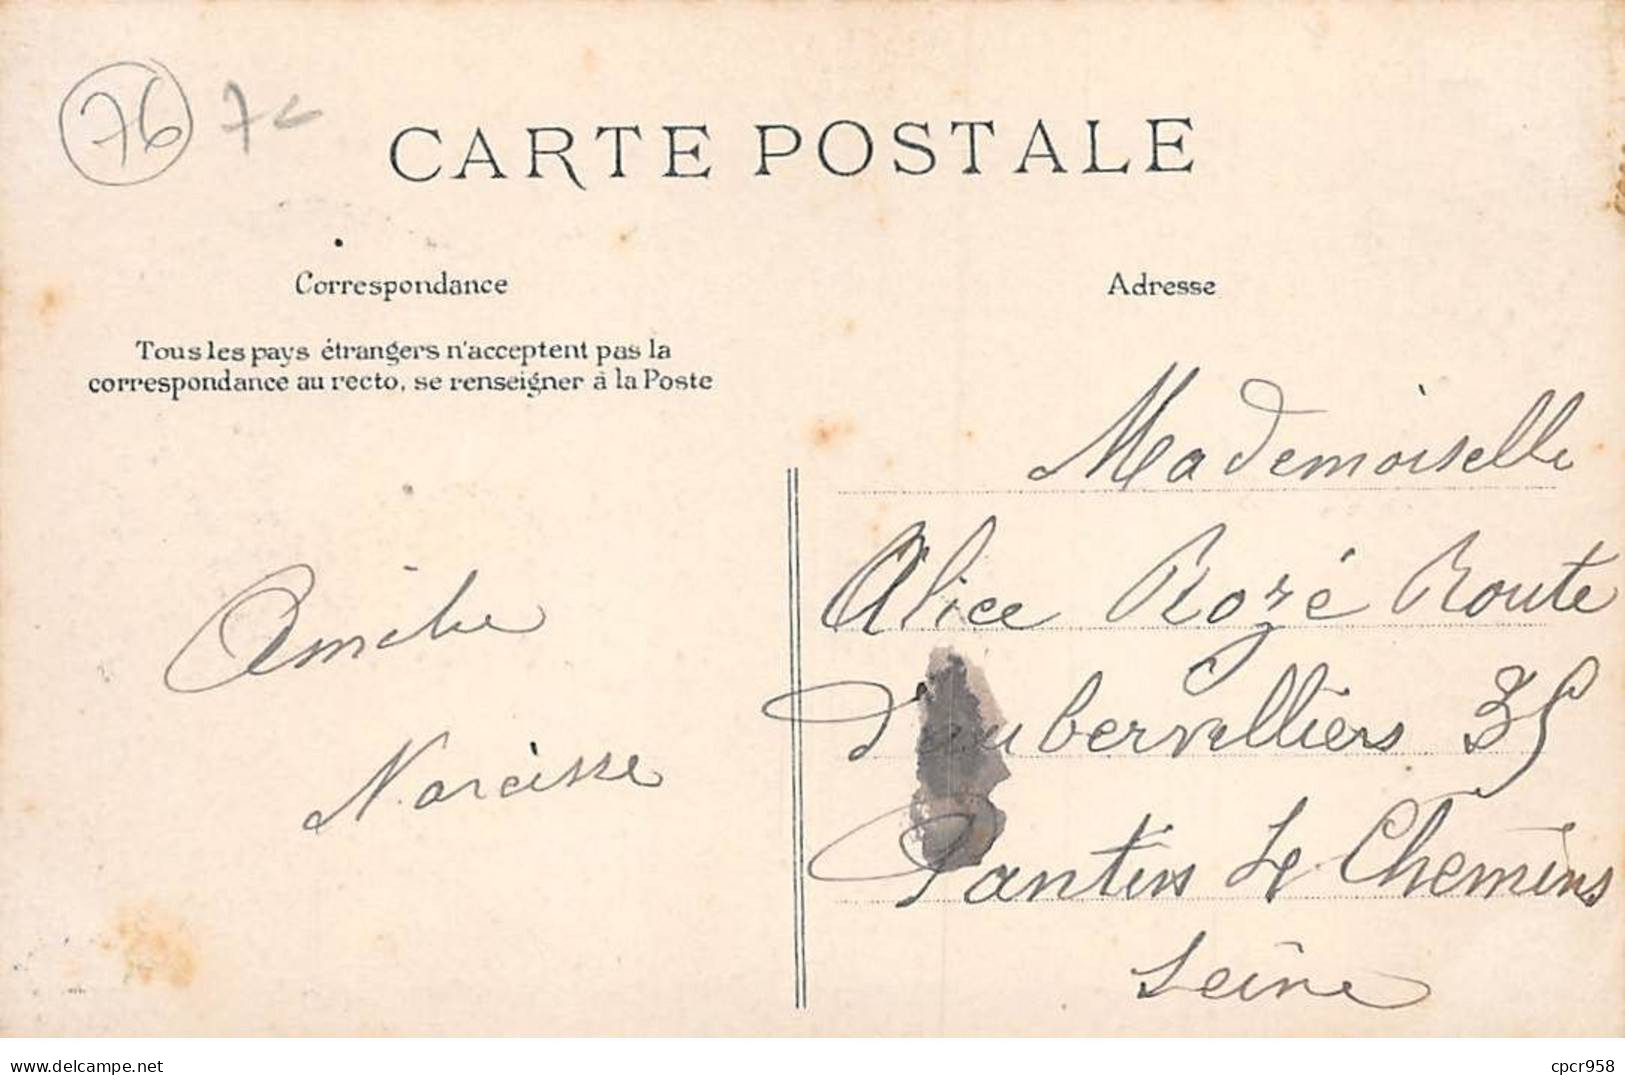 76 7€
CARTE POSTALE
Correspondance
Tous les pays étrangers n'acceptent pas la
correspondance au recto, se renseigner à la Poste
Narcisse
Adresse
Mademoiselle
Alice Rozé Route
d'aubervilliers 35
Pantin Le Chemins
Seine
delcampe.net
cpcr958